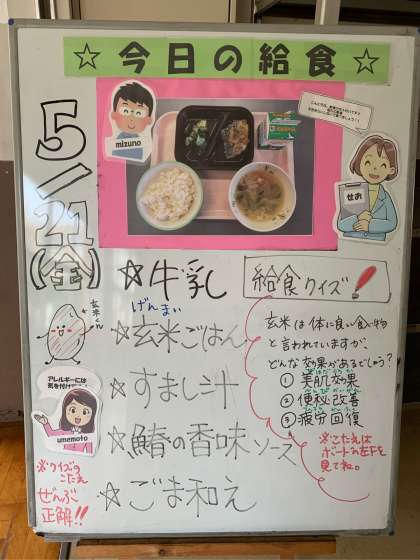 ☆ 今日の給食 ☆
mizuno
せお
5/21(金)
☆牛乳
げんまい
☆玄米ごはん
☆すまし汁
☆鰆の香味ソース
☆ごま和え
玄米くん
アレルギーには
umemoto
※クイズのこたえ
ぜんぶ
正解!!
給食クイズ!
玄米は体に良い食べ物
と言われていますが、
どんな効果があるでしょう?
① 美肌効果
② 便秘改善
③ 疲労回復
※こたえは
ボードの左下を
見てね。